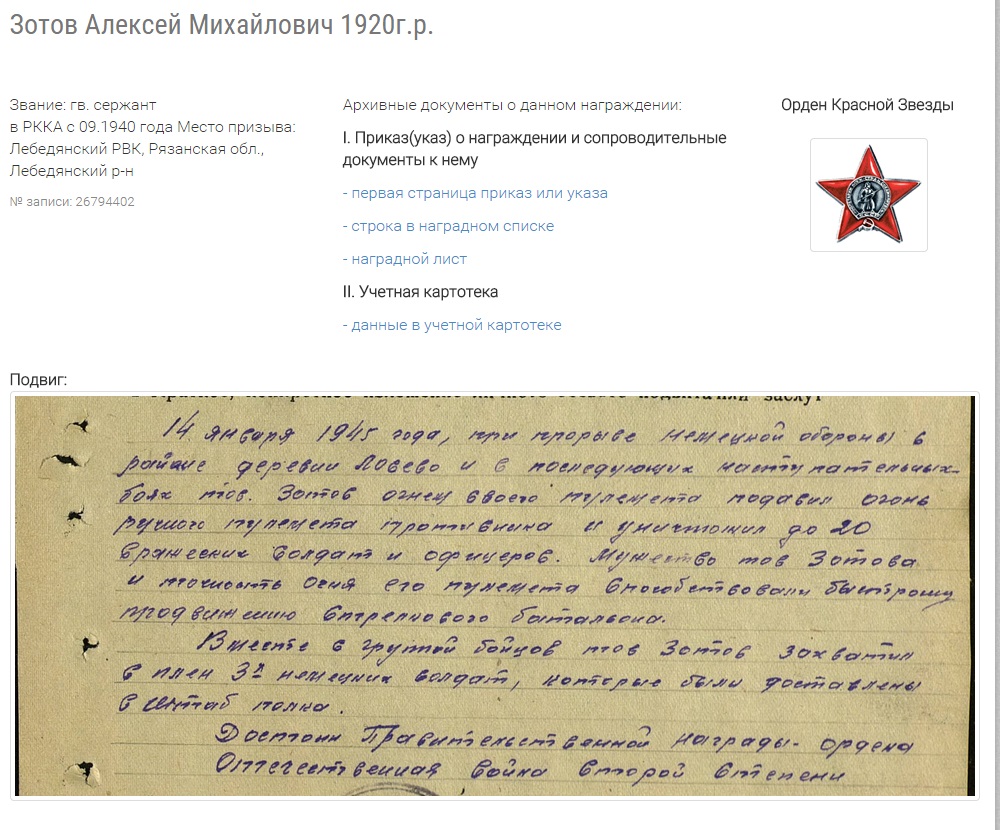 Зотов Алексей Михайлович 1920г.р.
Звание: гв. сержант
в РККА с 09.1940 года Место призыва:
Лебедянский РВК, Рязанская обл.,
Лебедянский р-н
№ записи: 26794402
Архивные документы о данном награждении:
I. Приказ(указ) о награждении и сопроводительные
документы к нему
- первая страница приказ или указа
- строка в наградном списке
- наградной лист
II. Учетная картотека
- данные в учетной картотеке
Орден Красной Звезды
Подвиг:
14 января 1945 года, при прорыве немецкой обороны в
районе деревни и в последующих наступательных
боях тов. Зотов огнем своего пулемета подавил огонь
ручного пулемета противника и уничтожил до 20
вражеских солдат и офицеров. Мужество тов Зотова
и точность огня его пулемета способствовали быстрому
продвижению стрелкового батальона.
Вместе с группой бойцов тов Зотов захватил
в плен 3х немецких солдат, которые были доставлены
в штаб полка.
Достоин Правительственной награды - ордена
Отечественная война второй степени